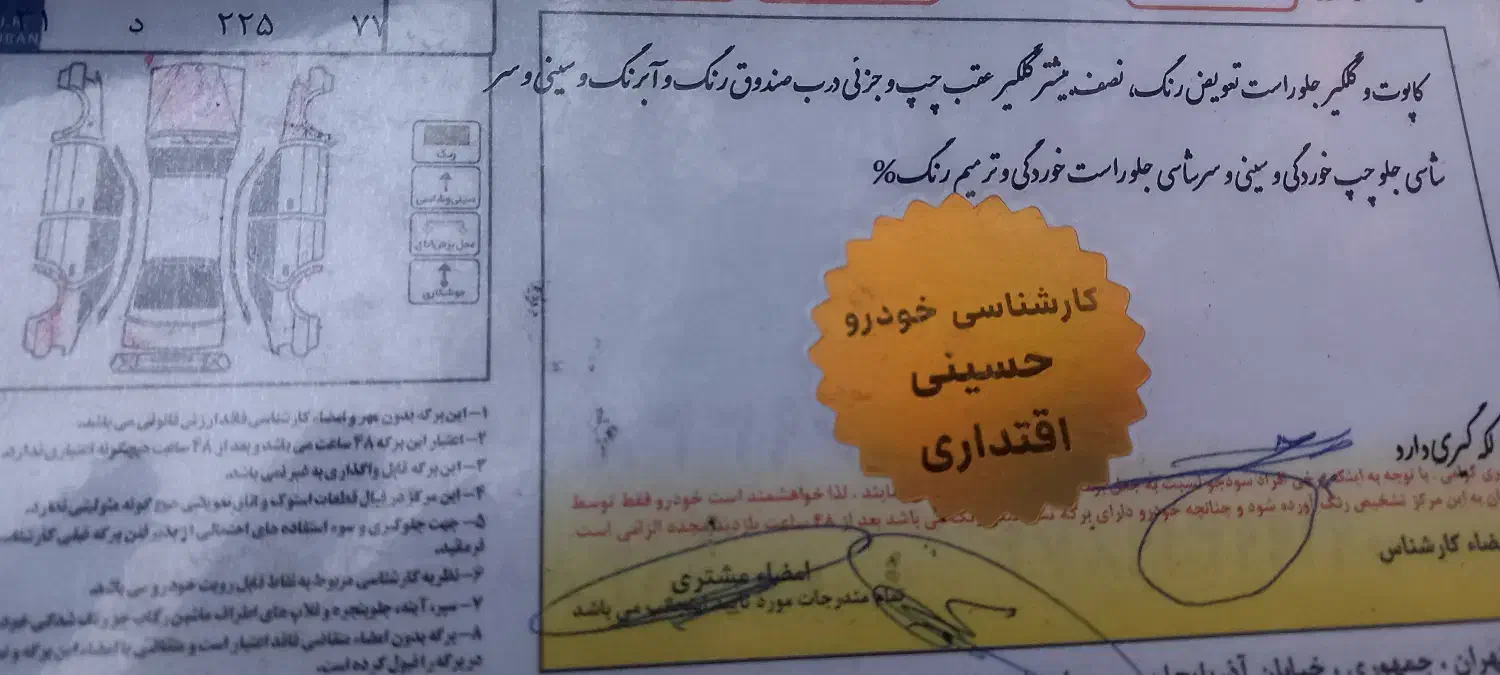 ۷۷ د ۲۲۵
IRAN
کاپوت و گلگیر جلو راست تعویض رنگ، نصف بیشتر گلگیر عقب چپ و جزئی درب صندوق رنگ و آبرنگ و سینی و سر
شاسی جلو چپ خوردگی و سینی و سرشاسی جلو راست خوردگی و ترمیم رنگ %
رنگ
سینی و شاسی
محل برش اتاق
جوشکاری
کارشناسی خودرو
حسینی
اقتداری
لکه گیری دارد
۱- این برگه بدون مهر و امضاء کارشناسی فاقد ارزش قانونی می باشد.
۲- اعتبار این برگه ۴۸ ساعت می باشد و بعد از ۴۸ ساعت هیچگونه اعتباری ندارد.
۳- این برگه قابل واگذاری به غیر نمی باشد.
۴- این مرکز در قبال قطعات استوک و اتاق تعویضی هیچ گونه مسئولیتی ندارد.
۵- جهت جلوگیری و سوء استفاده های احتمالی از پذیرفتن برگه قبلی کارشناسی
فرمائید.
۶- نظریه کارشناسی مربوط به نقاط قابل رویت خودرو می باشد.
۷- سپر، آینه، جلوپنجره و قلاب های اطراف ماشین رکاب جز رنگ شدگی
۸- برگه بدون امضاء متقاضی فاقد اعتبار است و متقاضی با امضاء این برگه
در برگه را قبول کرده است.
با توجه به اینکه برخی افراد سودجو نسبت به جعل نمایند. لذا خواهشمند است خودرو فقط توسط
به این مرکز تشخیص رنگ آورده شود و چنانچه خودرو دارای برگه می باشد بعد از ۴۸ ساعت بازدید مجدد الزامی است
امضاء کارشناس
امضاء مشتری
تمام مندرجات مورد تایید می باشد
تهران، جمهوری، خیابان آذربایجان